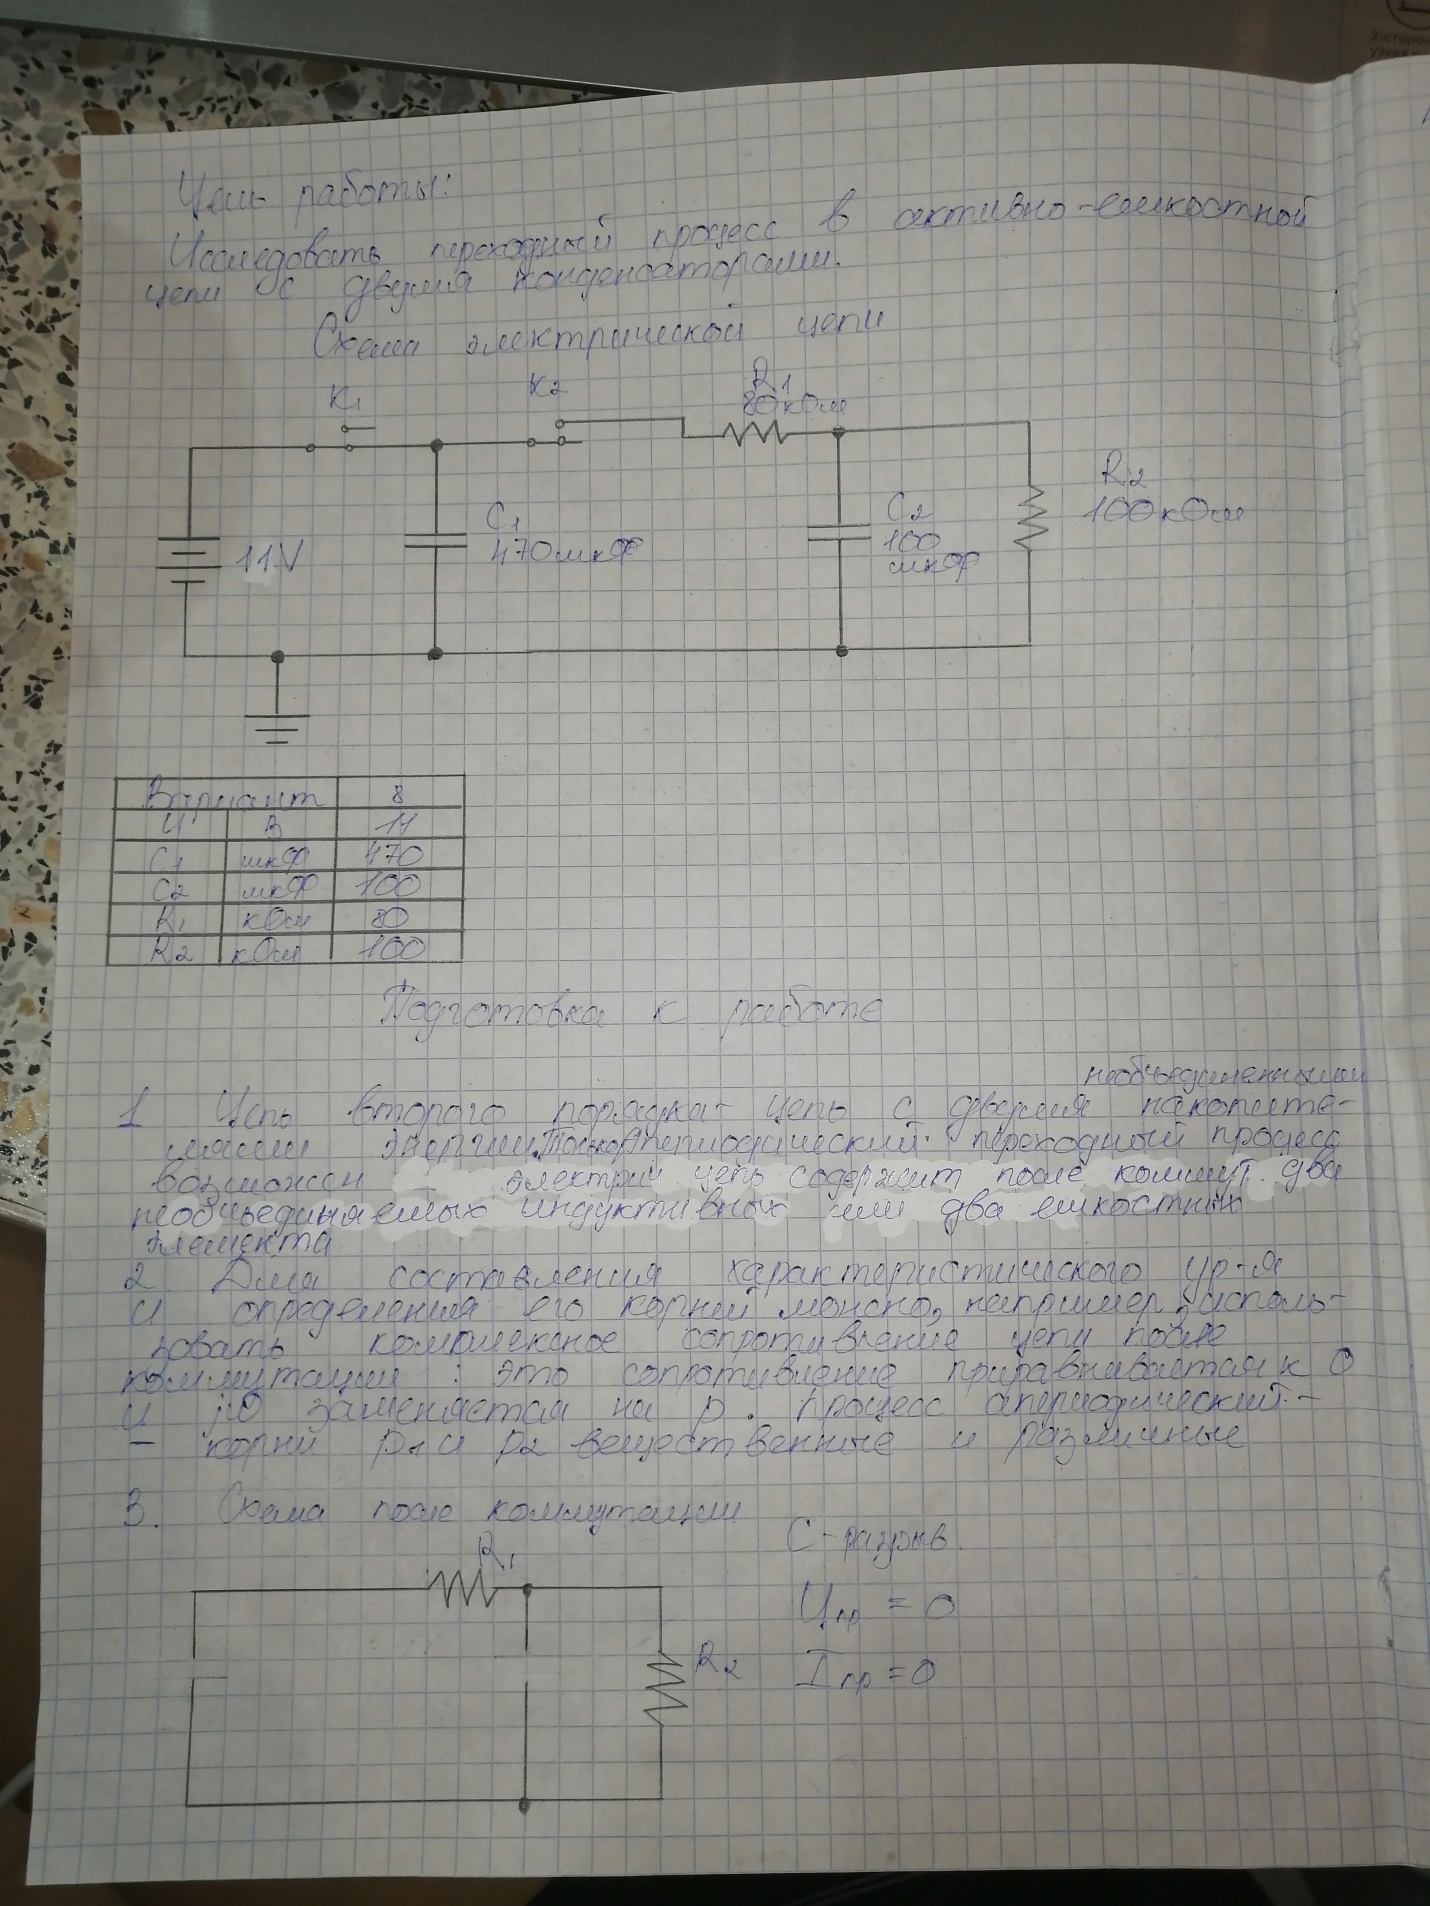 2-сторон
узкая
Цель работы:
Исследовать переходный процесс в активно-емкостной
цепи с двумя конденсаторами.
Схема электрической цепи
К1
К2
R1
80 кОм
11V
С1
470 мкФ
С2
100
мкФ
R2
100 кОм
Вариант 8
U В 11
С1 мкФ 470
С2 мкФ 100
R1 кОм 80
R2 кОм 100
Подготовка к работе
необъединенными
1 Цепь второго порядка - цепь с двумя накопите-
лями энергии. Только апериодический переходный процесс
возможен электрич цепь содержит после коммут. два
необъединяемых индуктивных или два емкостных
элемента
2 Для составления характеристического ур-я
и определения его корней можно, например, исполь-
зовать комплексное сопротивление цепи после
коммутации : это сопротивление приравнивается к 0
и jω заменяется на p. Процесс апериодический -
- корни p1 и p2 вещественные и различные
3. Схема после коммутации
С - разрыв.
R1
R2
Uпр = 0
Iпр = 0